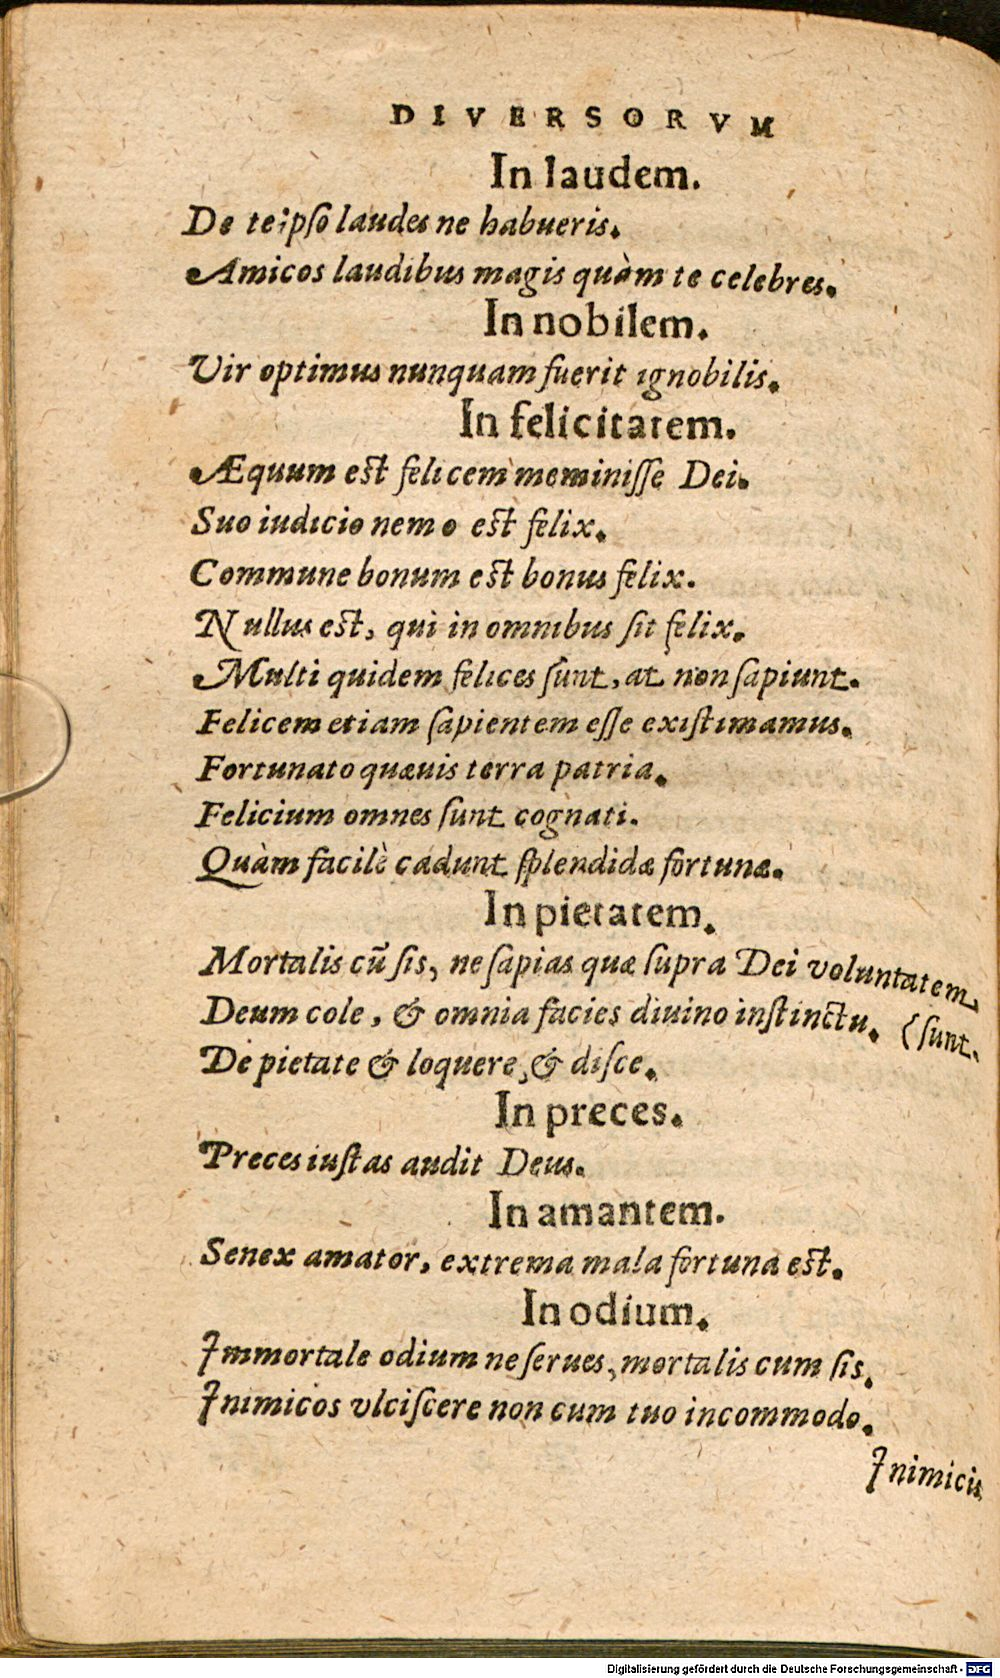 DIVERSORVM
In laudem.
De teipſo laudes ne habueris.
Amicos laudibus magis quàm te celebres.
In nobilem.
Vir optimus nunquam fuerit ignobilis.
In felicitatem.
Æquum eſt felicem meminiſſe Dei.
Suo iudicio nemo eſt felix.
Commune bonum eſt bonus felix.
Nullus eſt, qui in omnibus ſit felix.
Multi quidem felices ſunt, at non ſapiunt.
Felicem etiam ſapientem eſſe exiſtimamus.
Fortunato quæuis terra patria.
Felicium omnes ſunt cognati.
Quàm facilè cadunt ſplendidæ fortunæ.
In pietatem.
Mortalis cũ ſis, ne ſapias quæ ſupra Dei voluntatem
Deum cole, & omnia facies diuino inſtinctu. (ſunt.
De pietate & loquere, & diſce.
In preces.
Preces iuſtas audit Deus.
In amantem.
Senex amator, extrema mala fortuna eſt.
In odium.
Immortale odium ne ſerues, mortalis cum ſis.
Inimicos vlciſcere non cum tuo incommodo.
Inimicis
Digitalisierung gefördert durch die Deutsche Forschungsgemeinschaft - DFG